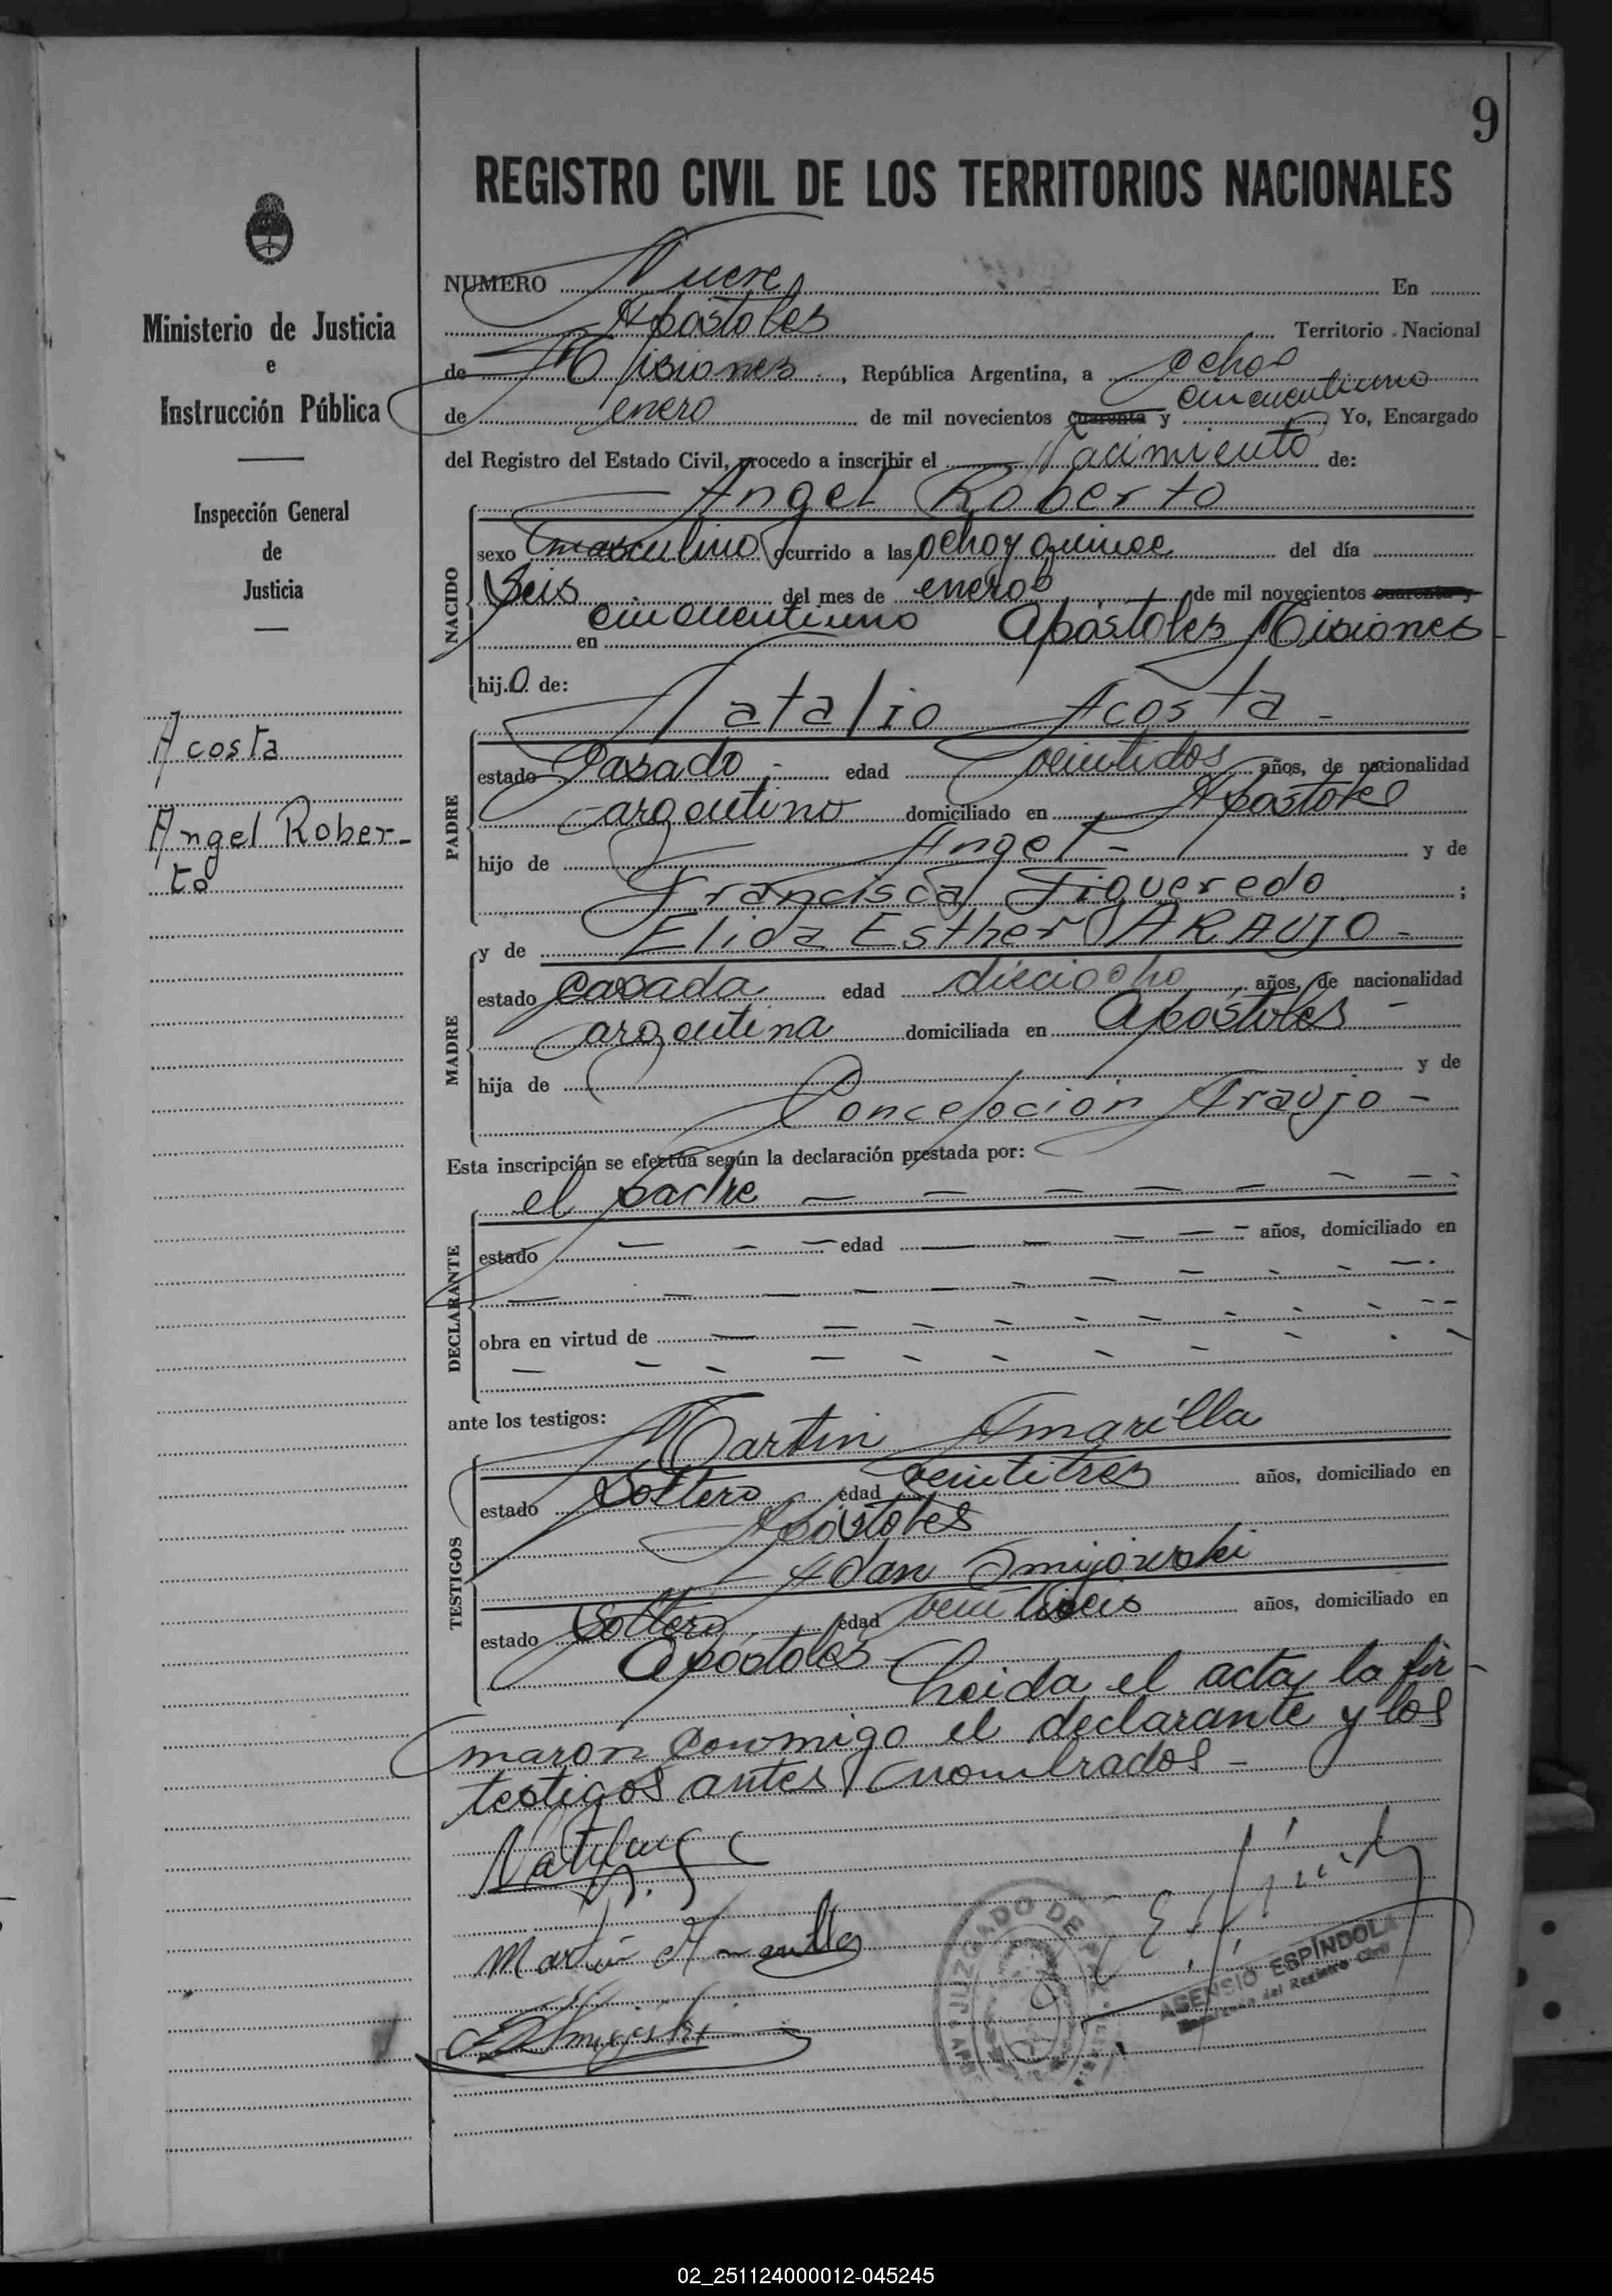 9
REGISTRO CIVIL DE LOS TERRITORIOS NACIONALES
Ministerio de Justicia
e
Instrucción Pública
Inspección General
de
Justicia
Acosta
Angel Rober-
to
NUMERO Nueve En
Apóstoles Territorio Nacional
de Misiones, República Argentina, a ocho
de enero de mil novecientos cuarenta y cincuentiuno Yo, Encargado
del Registro del Estado Civil, procedo a inscribir el Nacimiento de:
NACIDO
Angel Roberto
sexo masculino ocurrido a las ocho y quince del día
seis del mes de enero de mil novecientos cuarenta y
cincuentiuno en Apóstoles Misiones
hijo de:
PADRE
Natalio Acosta -
estado Casado - edad veintidos años, de nacionalidad
argentino domiciliado en Apóstoles
hijo de Angel - y de
Francisca Figueredo ;
MADRE
y de Elida Esther ARAUJO -
estado casada edad dieciocho, años, de nacionalidad
argentina domiciliada en Apóstoles -
hija de y de
Concepción Araujo -
Esta inscripción se efectúa según la declaración prestada por:
DECLARANTE
el padre
estado edad años, domiciliado en
obra en virtud de
ante los testigos:
TESTIGOS
Martin Amarilla
estado Soltero edad veintitres años, domiciliado en
Apóstoles
Adan Smijowski
estado Soltero edad veintiseis años, domiciliado en
Apóstoles - Leida el acta, la fir-
maron conmigo el declarante y los
testigos antes nombrados -
Martin Amarilla
JUZGADO DE
ASENSIO ESPÍNDOLA
Encargado del Registro Civil
02_251124000012-045245